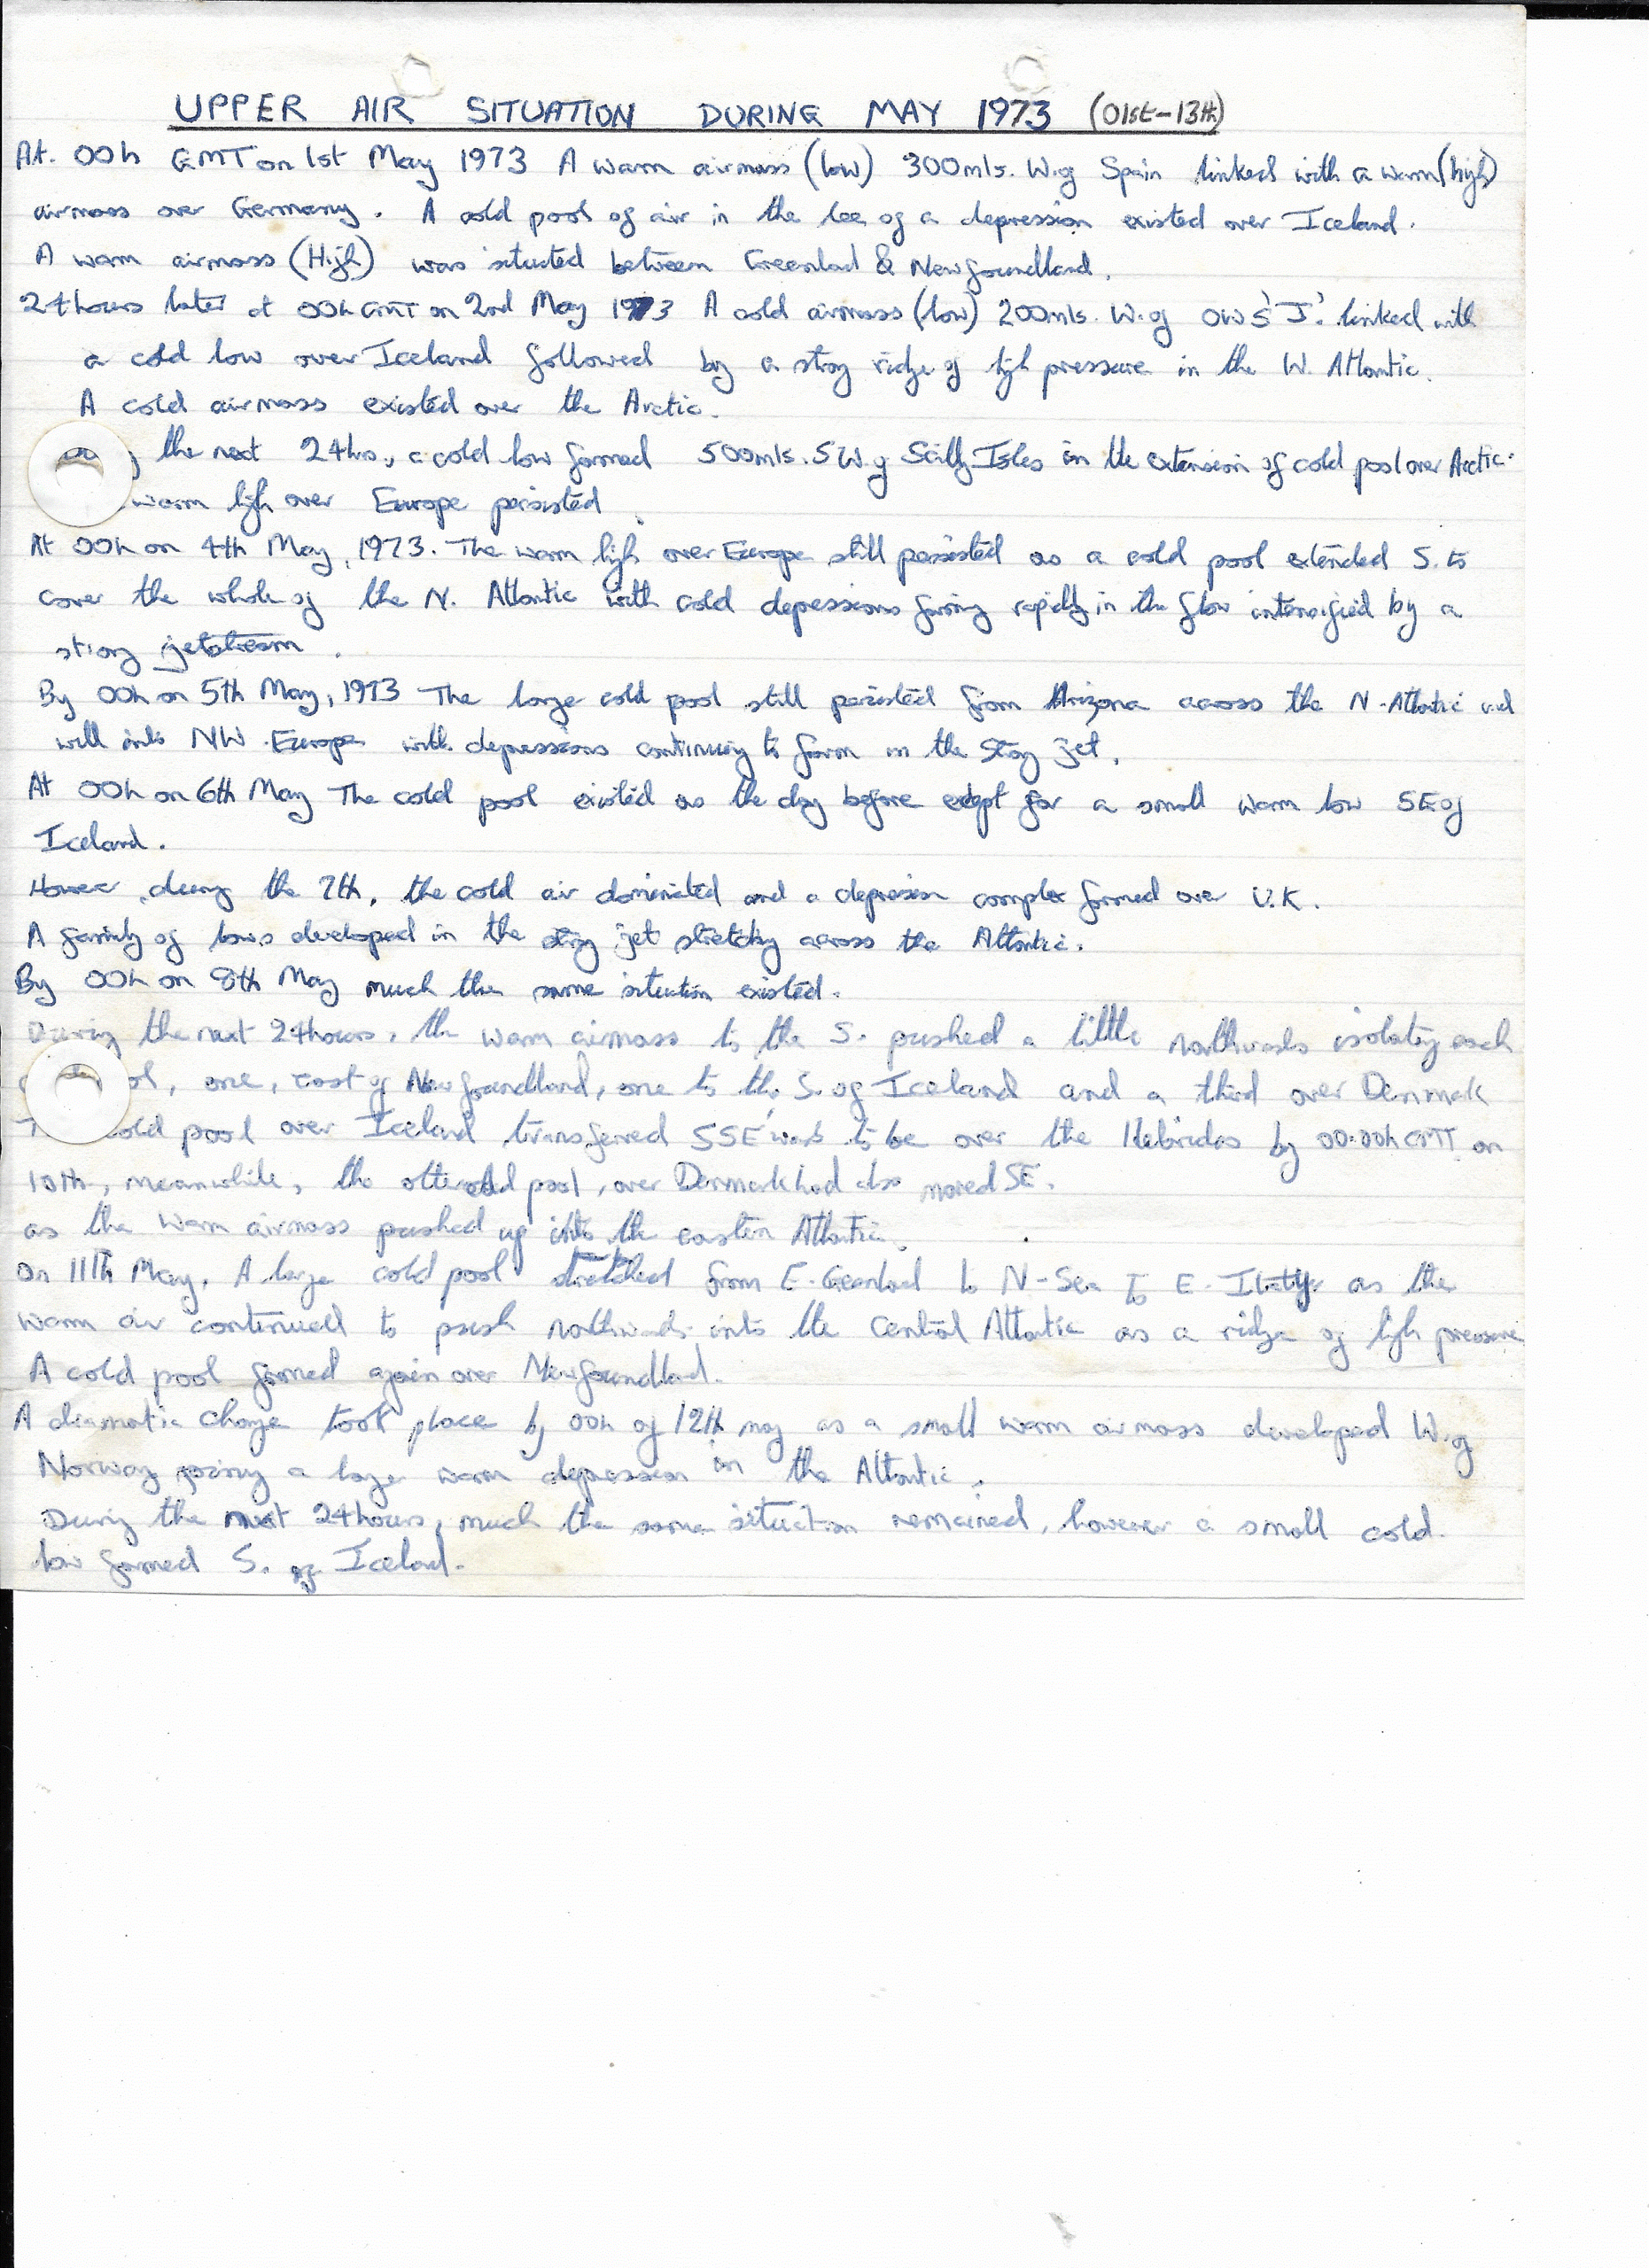 UPPER AIR SITUATION DURING MAY 1973 (01st-13th)
At. 00h GMT on 1st May 1973 A warm airmass (low) 300mls. W.of Spain linked with a warm (high)
airmass over Germany. A cold pool of air in the lee of a depression existed over Iceland.
A warm airmass (High) was situated between Greenland & Newfoundland.
24hours later at 00h GMT on 2nd May 1973 A cold airmass (low) 200mls. W. of OWS 'J'. linked with
a cold low over Iceland followed by a strong ridge of high pressure in the W. Atlantic.
A cold airmass existed over the Arctic.
the next 24hrs, a cold low formed 500mls. SW. of Scilly Isles in the extension of cold pool over Arctic.
warm high over Europe persisted
At 00h on 4th May, 1973. The warm high over Europe still persisted as a cold pool extended S. to
cover the whole of the N. Atlantic with cold depressions forming rapidly in the flow intensified by a
strong jetstream.
By 00h on 5th May, 1973 The large cold pool still persisted from Arizona across the N-Atlantic and
well into NW. Europe with depressions continuing to form in the strong jet.
At 00h on 6th May The cold pool existed as the day before except for a small warm low SE of
Iceland.
However, during the 7th, the cold air dominated and a depression complex formed over U.K.
A family of lows developed in the strong jet stretching across the Atlantic.
By 00h on 8th May much the same situation existed.
During the next 24hours, the warm airmass to the S. pushed a little northwards isolating each
one, east of Newfoundland, one to the S. of Iceland and a third over Denmark
cold pool over Iceland transferred SSE'wards to be over the Hebrides by 00.00h GMT on
10th, meanwhile, the other cold pool, over Denmark had also moved SE.
as the warm airmass pushed up into the eastern Atlantic.
On 11th May, A large cold pool stretched from E. Greenland to N-Sea to E. Italy as the
warm air continued to push northwards into the Central Atlantic as a ridge of high pressure
A cold pool formed again over Newfoundland.
A dramatic change took place by 00h of 12th may as a small warm airmass developed W. of
Norway joining a large warm depression in the Atlantic.
During the next 24hours, much the same situation remained, however a small cold
low formed S. of Iceland.